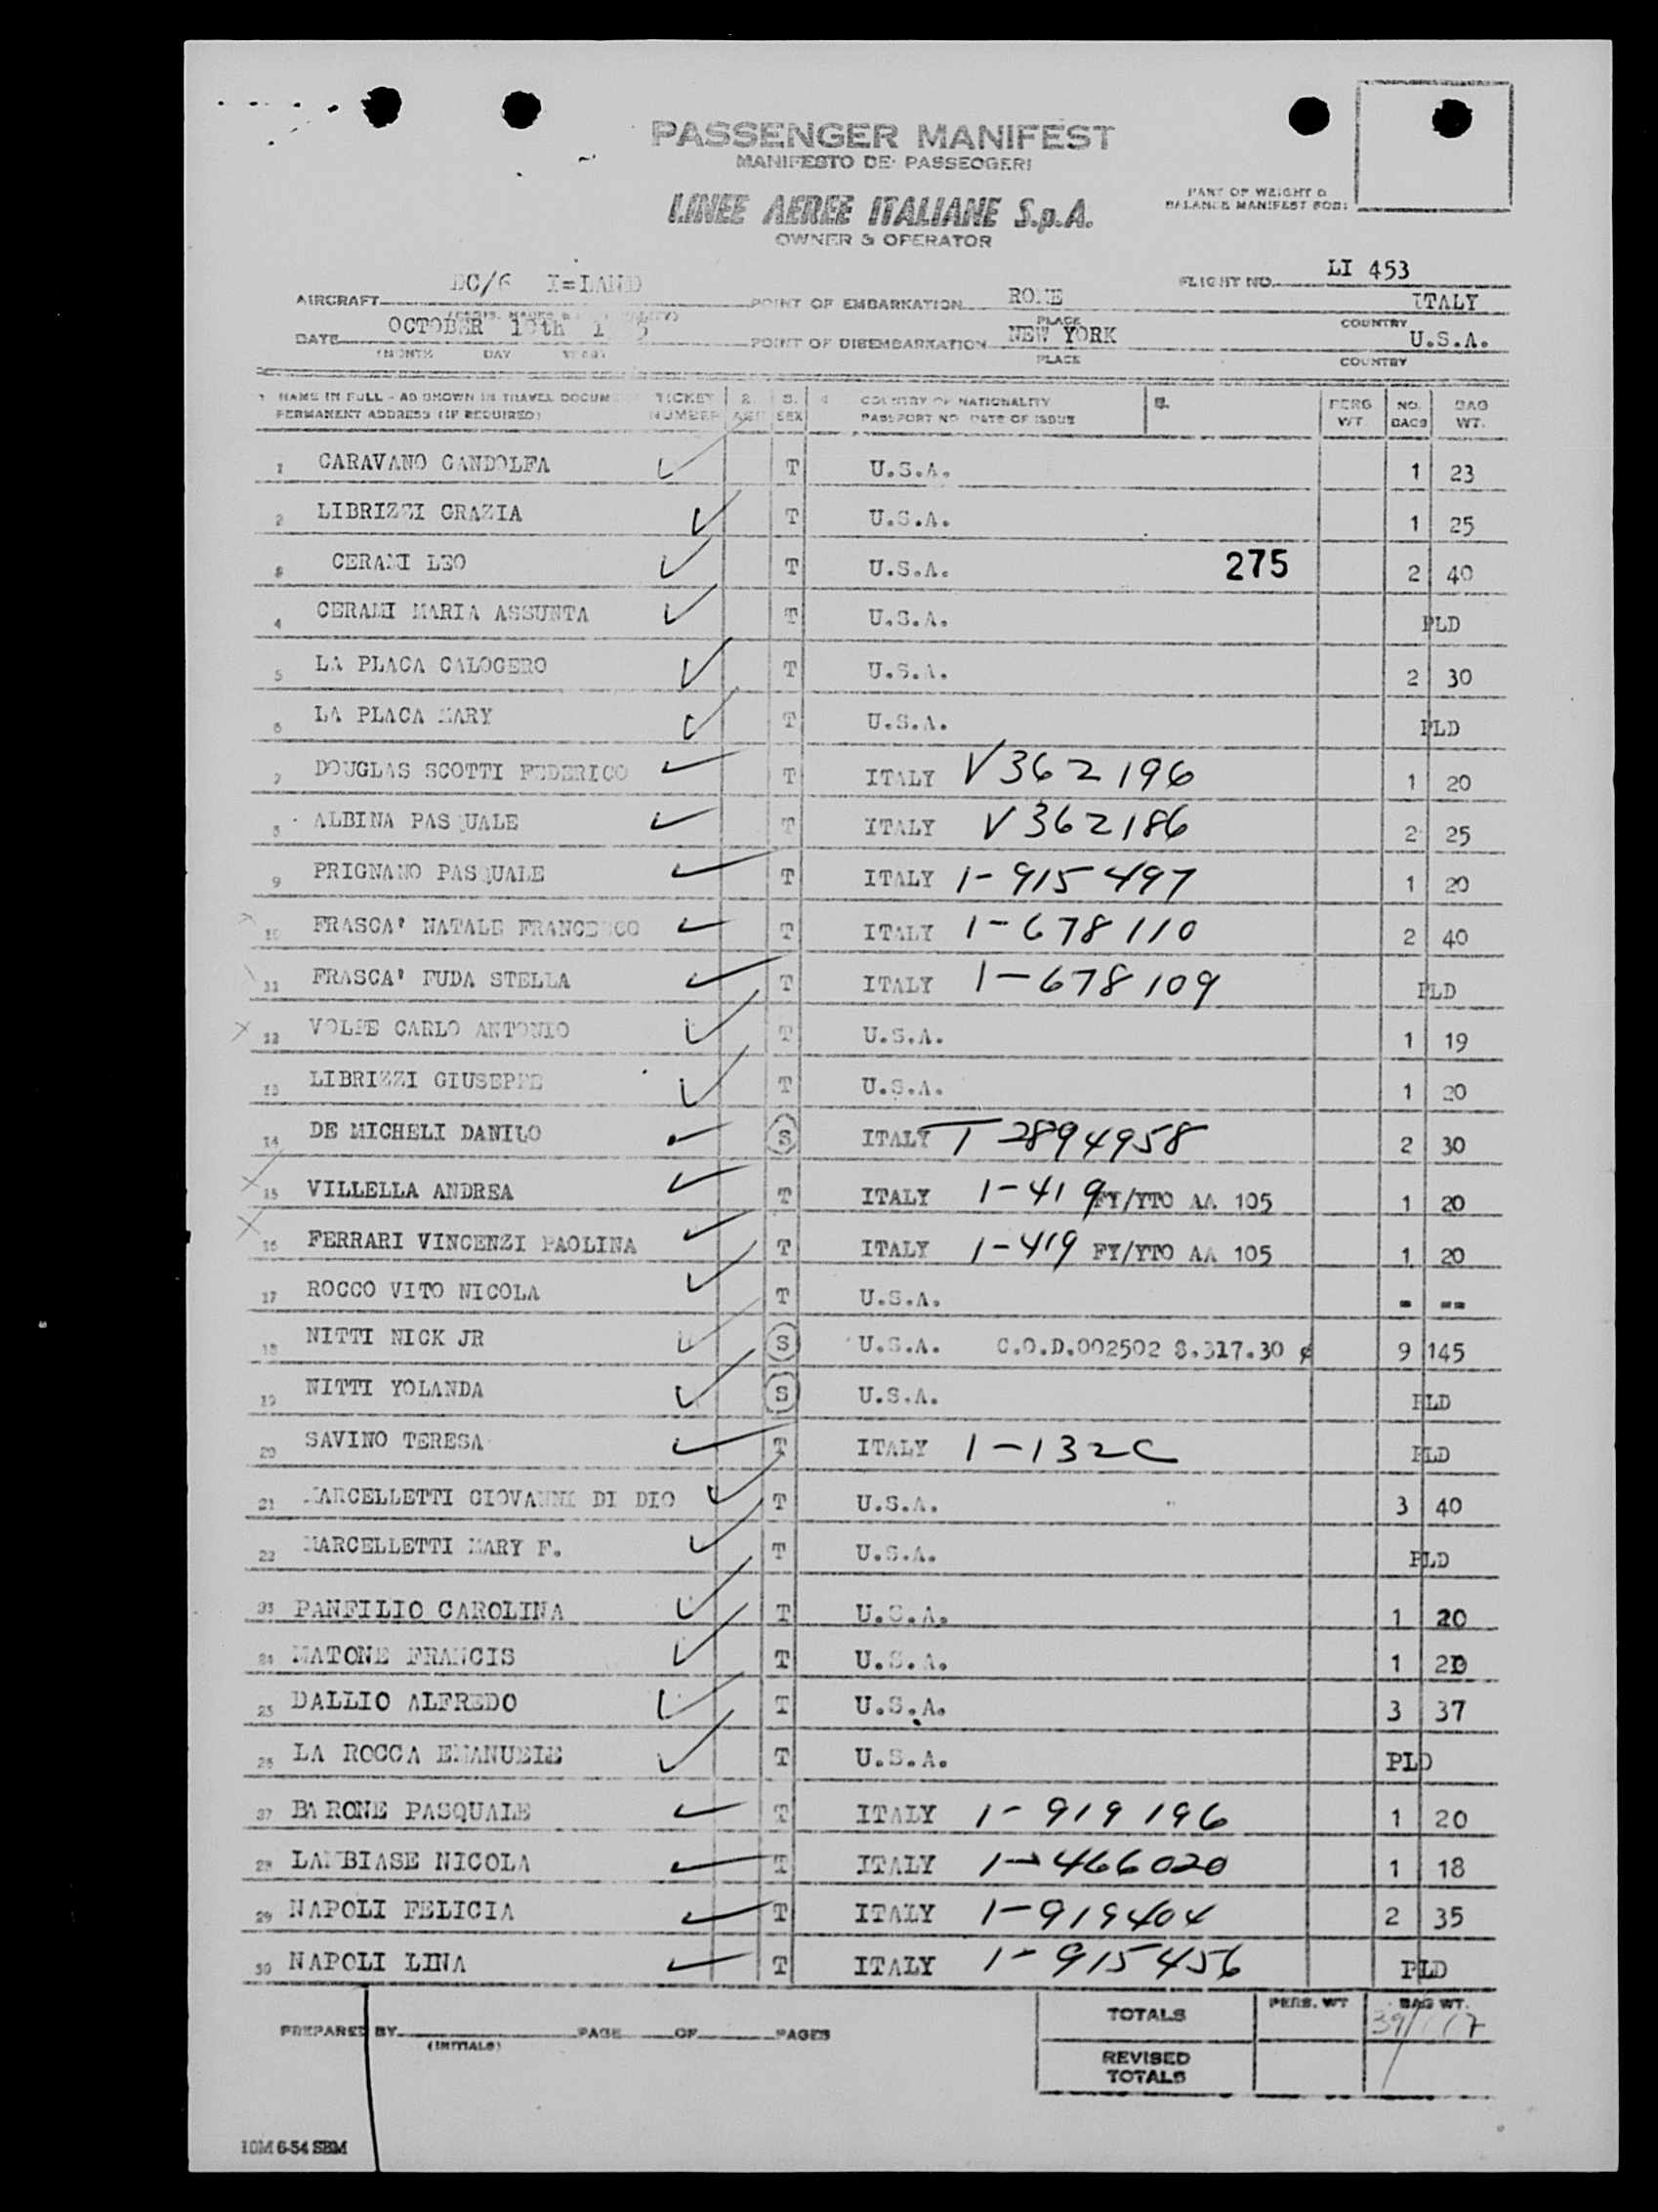 PASSENGER MANIFEST
MANIFESTO DEI PASSEGGERI
LINEE AEREE ITALIANE S.p.A.
OWNER & OPERATOR
PART OF WEIGHT &
BALANCE MANIFEST FOR:
AIRCRAFT DC/6 I=LAND FLIGHT NO. LI 453
POINT OF EMBARKATION ROME ITALY
PLACE COUNTRY
DATE OCTOBER 10th POINT OF DISEMBARKATION NEW YORK U.S.A.
(MONTH DAY YEAR) PLACE COUNTRY
1 NAME IN FULL - AS SHOWN IN TRAVEL DOCUM TICKET 2. 3. 4 COUNTRY OF NATIONALITY 5. PERS NO. BAG
PERMANENT ADDRESS (IF REQUIRED) NUMBER AGE SEX PASSPORT NO. DATE OF ISSUE WT BAGS WT.
1 CARAVANO GANDOLFA T U.S.A. 1 23
2 LIBRIZZI GRAZIA T U.S.A. 1 25
3 CERAMI LEO T U.S.A. 275 2 40
4 CERAMI MARIA ASSUNTA T U.S.A. PLD
5 LA PLACA CALOGERO T U.S.A. 2 30
6 LA PLACA MARY T U.S.A. PLD
7 DOUGLAS SCOTTI FEDERICO T ITALY V362196 1 20
8 ALBINA PASQUALE T ITALY V362186 2 25
9 PRIGNANO PASQUALE T ITALY 1-915497 1 20
10 FRASCA' NATALE FRANCESCO T ITALY 1-678110 2 40
11 FRASCA' FUDA STELLA T ITALY 1-678109 PLD
12 VOLPE CARLO ANTONIO T U.S.A. 1 19
13 LIBRIZZI GIUSEPPE T U.S.A. 1 20
14 DE MICHELI DANILO S ITALY T 2894958 2 30
15 VILLELLA ANDREA T ITALY 1-419 FY/YTO AA 105 1 20
16 FERRARI VINCENZI PAOLINA T ITALY 1-419 FY/YTO AA 105 1 20
17 ROCCO VITO NICOLA T U.S.A. - --
18 NITTI NICK JR S U.S.A. C.O.D.002502 $.317.30 ¢ 9 145
19 NITTI YOLANDA S U.S.A. PLD
20 SAVINO TERESA T ITALY 1-132C PLD
21 MARCELLETTI GIOVANNI DI DIO T U.S.A. 3 40
22 MARCELLETTI MARY F. T U.S.A. PLD
23 PANFILIO CAROLINA T U.S.A. 1 20
24 MATONE FRANCIS T U.S.A. 1
25 DALLIO ALFREDO T U.S.A. 3 37
26 LA ROCCA EMANUELE T U.S.A. PLD
27 BARONE PASQUALE T ITALY 1-919196 1 20
28 LAMBIASE NICOLA T ITALY 1-466020 1 18
29 NAPOLI FELICIA T ITALY 1-919404 2 35
30 NAPOLI LINA T ITALY 1-915456 PLD
PREPARED BY PAGE OF PAGES
(INITIALS)
TOTALS PERS. WT BAG WT.
REVISED
TOTALS
10M 6-54 SBM